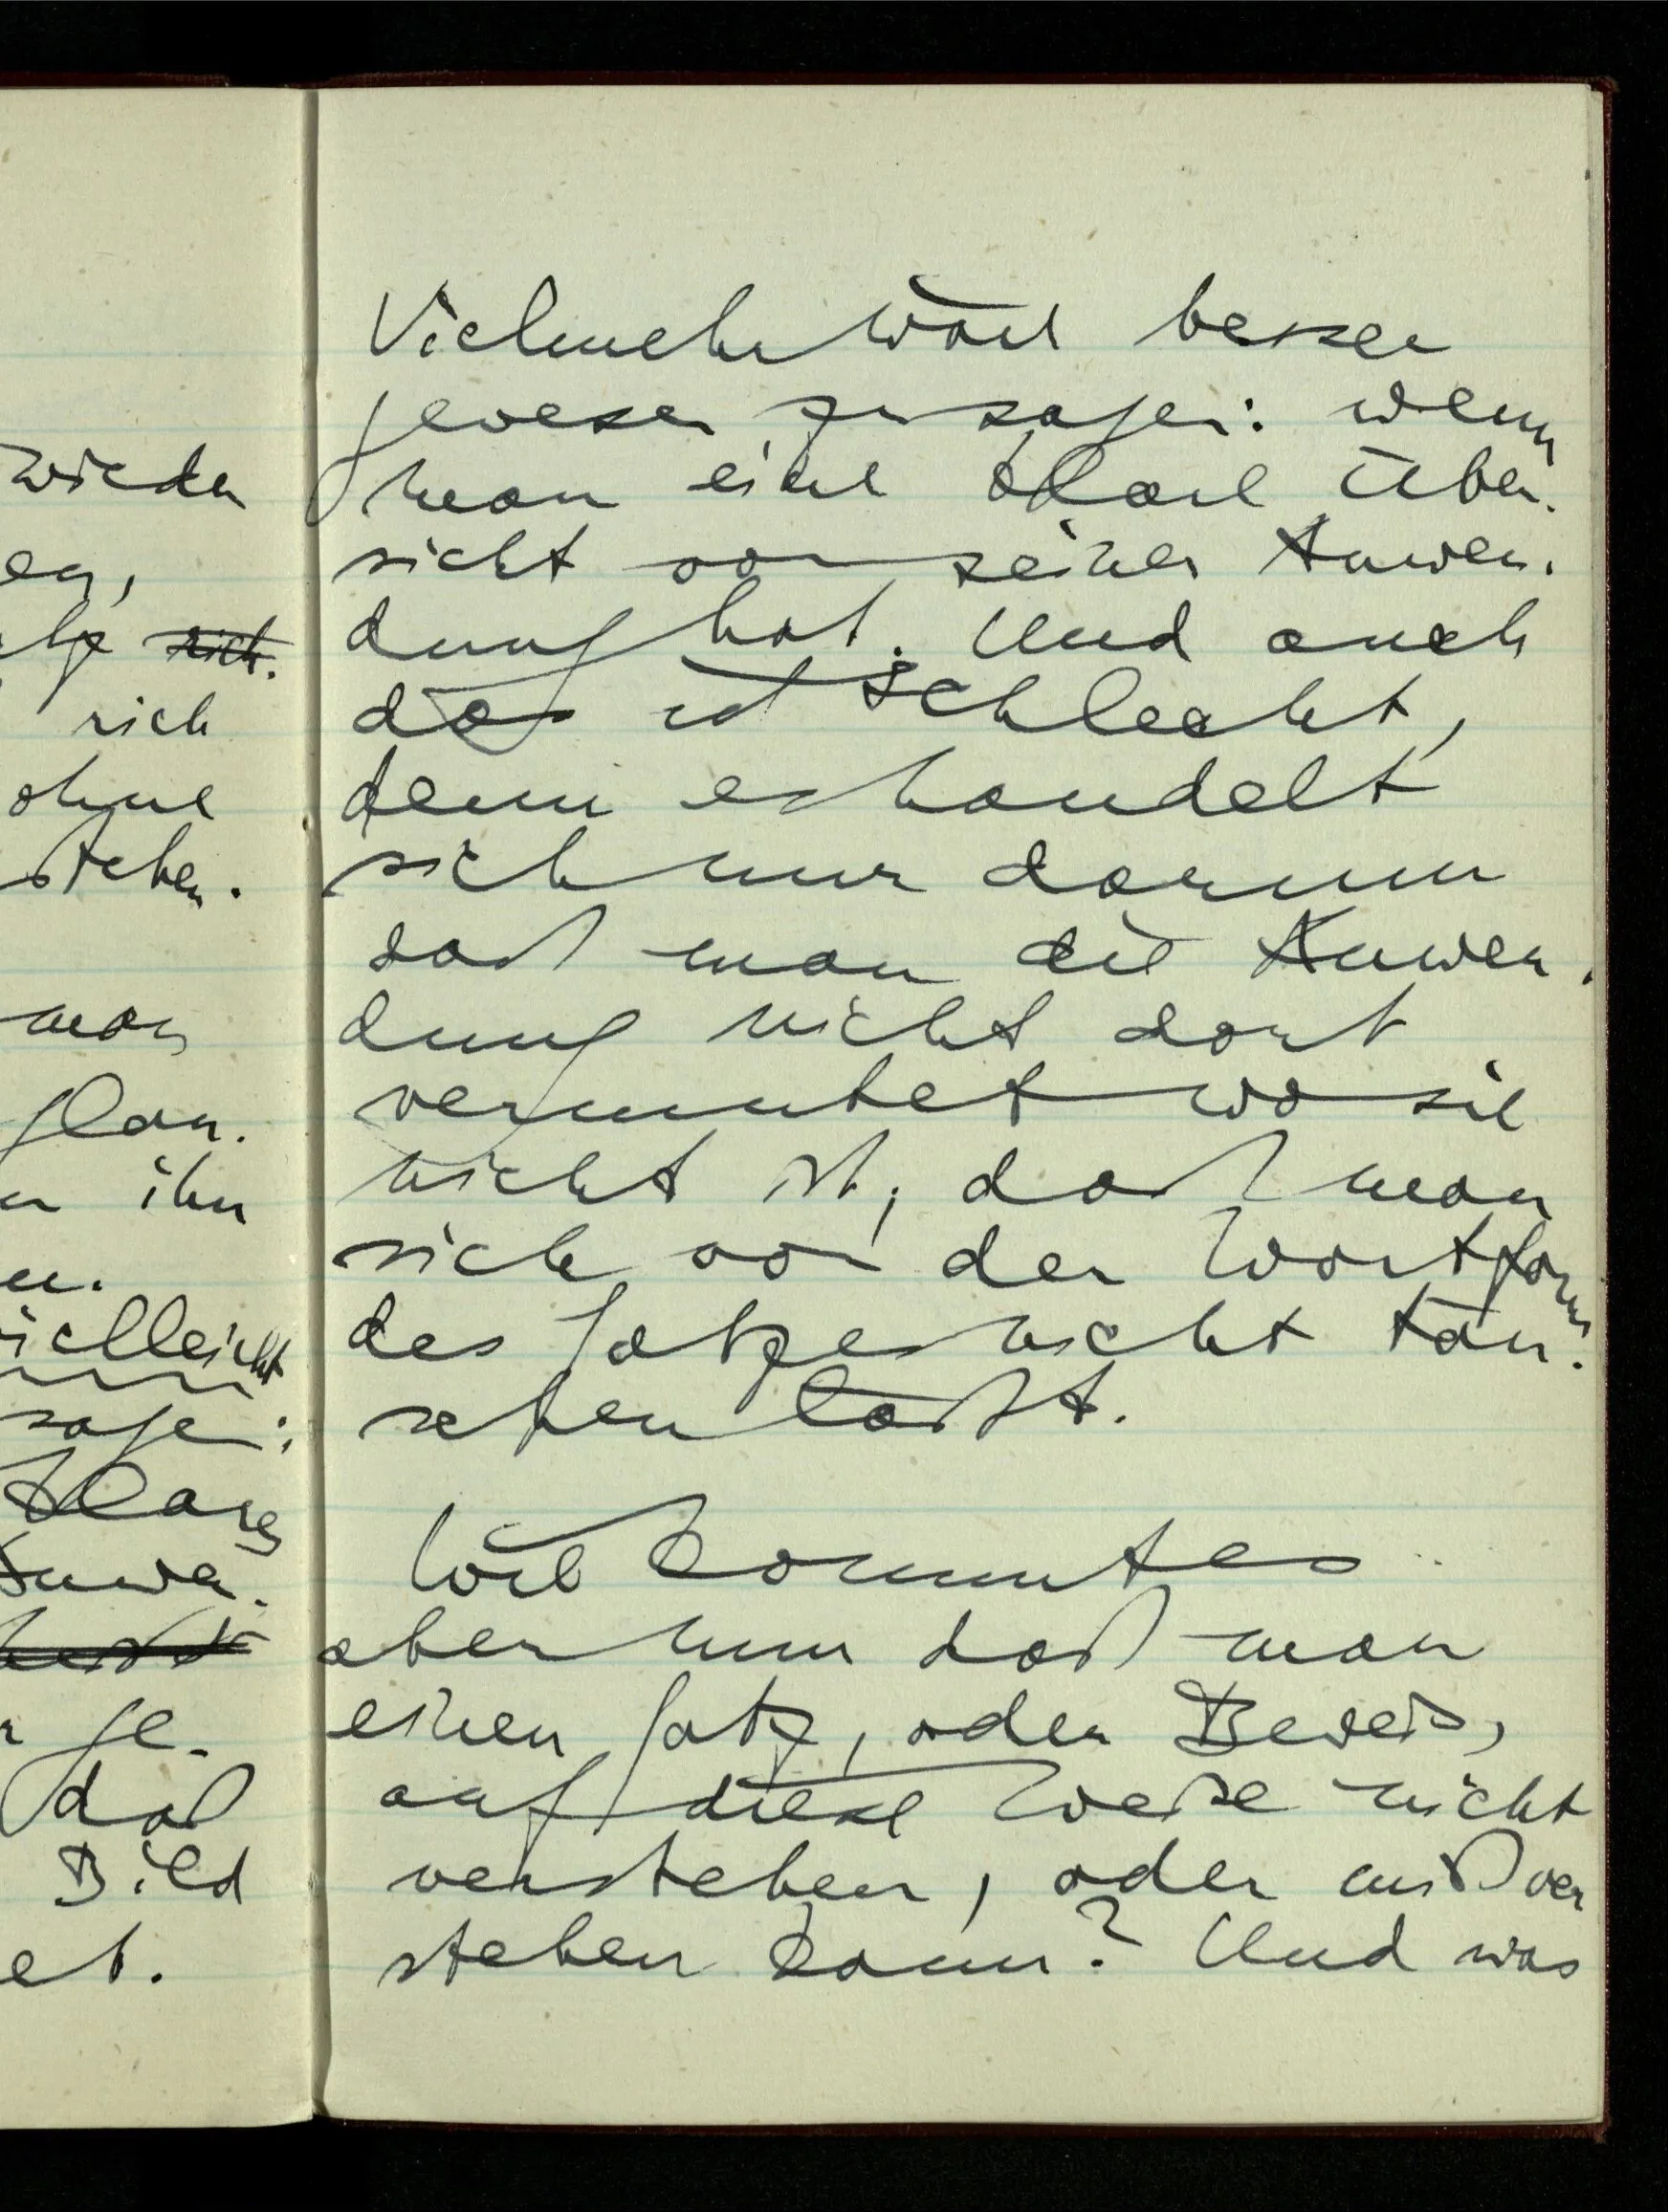 wieder
en,
sich.
sich
ohne
stehen.
man
glau.
ihn
en.
vielleicht
sagen:
klares
Anwen.
ge.
daß
Bild
et.
Vielmehr wäre besser
gewesen zu sagen: wenn
man eine klare Über-
sicht von seiner Anwen-
dung hat. Und auch
das ist schlecht,
denn es handelt
sich nur darum
daß man die Anwen-
dung nicht dort
vermutet wo sie
nicht ist; daß man
sich von der Wortform
des Satzes nicht täu-
schen läßt.
Wie kommt es
aber nun daß man
einen Satz, oder Beweis,
auf diese Weise nicht
verstehen, oder mißver
stehen kann? Und was